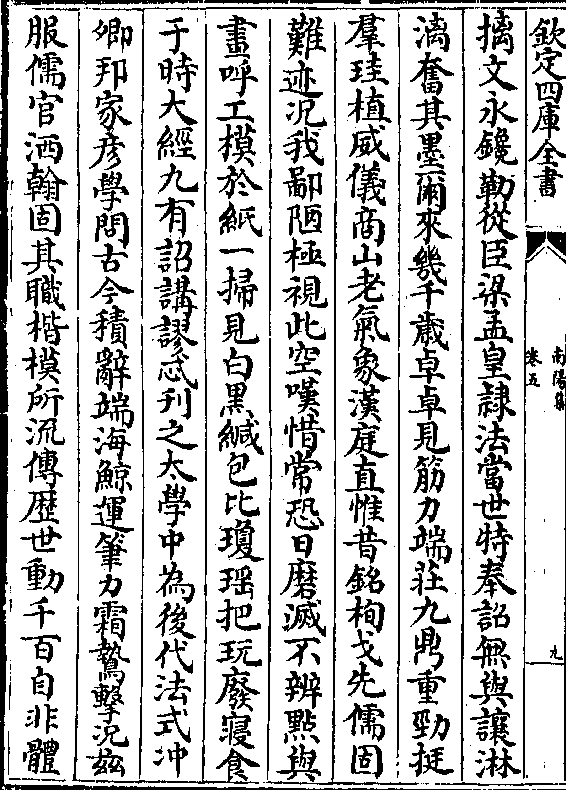 欽定四庫全書
南陽集
卷五
九
摛文永鑱勒從臣梁孟皇隷法當世特奉詔無與讓淋
漓奮其墨爾來幾千歲卓卓見筋力端莊九鼎重勁挺
羣珪植威儀商山老氣象漢庭直惟昔銘栒戈先儒固
難迹况我鄙陋極視此空嘆惜常恐日磨滅不辨點與
畫呼工模於紙一掃見白黒緘包比瓊瑶把玩廢寢食
于時大經九有詔講謬忒刋之太學中為後代法式冲
卿邦家彦學問古今積辭端海鯨運筆力霜鷙擊况兹
服儒官洒翰固其職楷模所流傳歴世動千百自非體